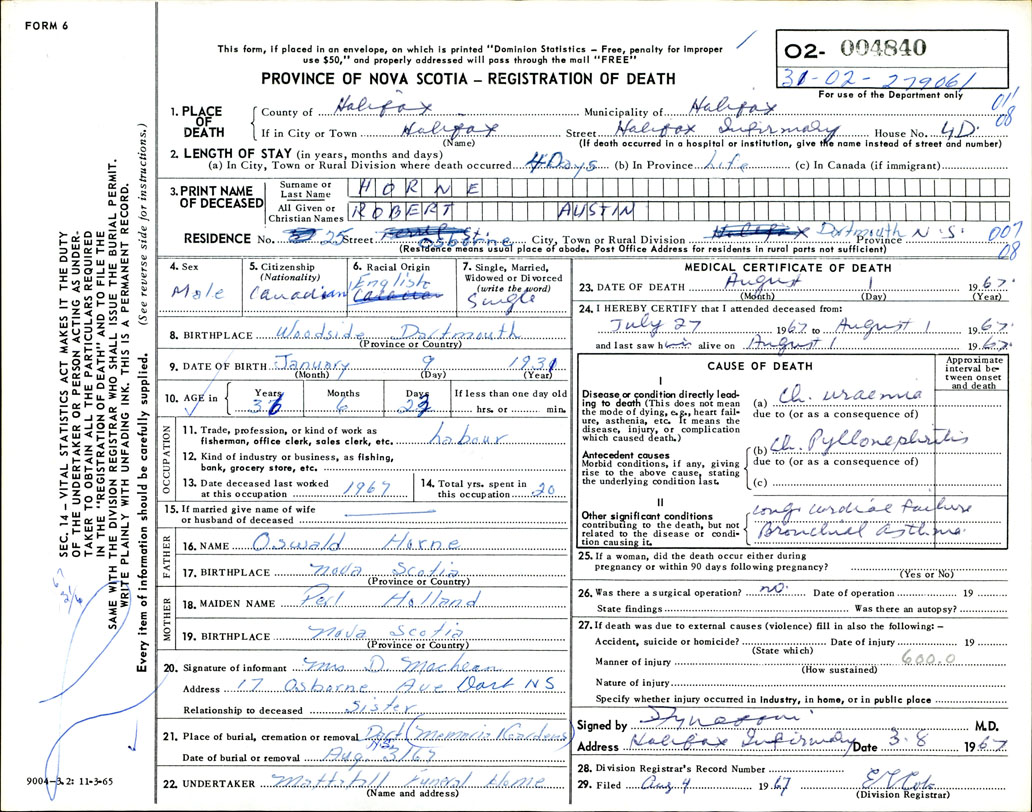 FORM 6
This form, if placed in an envelope, on which is printed "Dominion Statistics – Free, penalty for improper
use $50," and properly addressed will pass through the mail "FREE"
PROVINCE OF NOVA SCOTIA – REGISTRATION OF DEATH
02- 004840
31-02-279061
For use of the Department only
011
08
1. PLACE OF DEATH
County of Halifax Municipality of Halifax
If in City or Town Halifax Street Halifax Infirmary House No. 4D.
(Name) (If death occurred in a hospital or institution, give the name instead of street and number)
2. LENGTH OF STAY (in years, months and days)
(a) In City, Town or Rural Division where death occurred 4 Days (b) In Province Life (c) In Canada (if immigrant)
3. PRINT NAME OF DECEASED
Surname or Last Name HORNE
All Given or Christian Names ROBERT AUSTIN
RESIDENCE No. 25 Street Osborne City, Town or Rural Division Halifax Dartmouth Province N.S.
(Residence means usual place of abode. Post Office Address for residents in rural parts not sufficient)
007
08
4. Sex Male
5. Citizenship (Nationality) Canadian
6. Racial Origin English Canadian
7. Single, Married, Widowed or Divorced (write the word) Single
8. BIRTHPLACE Woodside Dartmouth
(Province or Country)
9. DATE OF BIRTH January 9 1931
(Month) (Day) (Year)
10. AGE in Years 36 Months 6 Days 22 If less than one day old hrs. or min.
OCCUPATION
11. Trade, profession, or kind of work as fisherman, office clerk, sales clerk, etc. labour
12. Kind of industry or business, as fishing, bank, grocery store, etc.
13. Date deceased last worked at this occupation 1967
14. Total yrs. spent in this occupation 20
15. If married give name of wife or husband of deceased
FATHER
16. NAME Oswald Horne
17. BIRTHPLACE Nova Scotia
(Province or Country)
MOTHER
18. MAIDEN NAME Perl Holland
19. BIRTHPLACE Nova Scotia
(Province or Country)
20. Signature of informant Mrs D. MacLean
Address 17 Osborne Ave Dart NS
Relationship to deceased Sister
21. Place of burial, cremation or removal Dart (Memorial Gardens)
NS
Date of burial or removal Aug. 3/67
22. UNDERTAKER Mattatall Funeral Home
(Name and address)
MEDICAL CERTIFICATE OF DEATH
23. DATE OF DEATH August 1 1967
(Month) (Day) (Year)
24. I HEREBY CERTIFY that I attended deceased from:
July 27 1967 to August 1 1967
and last saw him alive on August 1 1967
CAUSE OF DEATH
Approximate interval between onset and death
I
Disease or condition directly leading to death (This does not mean the mode of dying, e.g., heart failure, asthenia, etc. It means the disease, injury, or complication which caused death.)
(a) Ch. uraemia
due to (or as a consequence of)
Antecedent causes
Morbid conditions, if any, giving rise to the above cause, stating the underlying condition last.
(b) Ch. Pyllonephritis
due to (or as a consequence of)
(c)
II
Other significant conditions
contributing to the death, but not related to the disease or condition causing it.
cong cardiac failure
Bronchial asthma.
25. If a woman, did the death occur either during
pregnancy or within 90 days following pregnancy?
(Yes or No)
26. Was there a surgical operation? no. Date of operation 19
State findings Was there an autopsy?
27. If death was due to external causes (violence) fill in also the following: –
Accident, suicide or homicide? Date of injury 19
(State which)
Manner of injury 600.0
(How sustained)
Nature of injury
Specify whether injury occurred in industry, in home, or in public place
Signed by M.D.
Address Halifax Infirmary Date 3.8 1967
28. Division Registrar's Record Number
29. Filed Aug 4 1967
(Division Registrar)
SEC. 14 – VITAL STATISTICS ACT MAKES IT THE DUTY
OF THE UNDERTAKER OR PERSON ACTING AS UNDER-
TAKER TO OBTAIN ALL THE PARTICULARS REQUIRED
IN THE "REGISTRATION OF DEATH" AND TO FILE THE
SAME WITH THE DIVISION REGISTRAR WHO SHALL ISSUE THE BURIAL PERMIT.
WRITE PLAINLY WITH UNFADING INK. THIS IS A PERMANENT RECORD.
Every item of information should be carefully supplied. (See reverse side for instructions.)
9004-3.2: 11-3-65